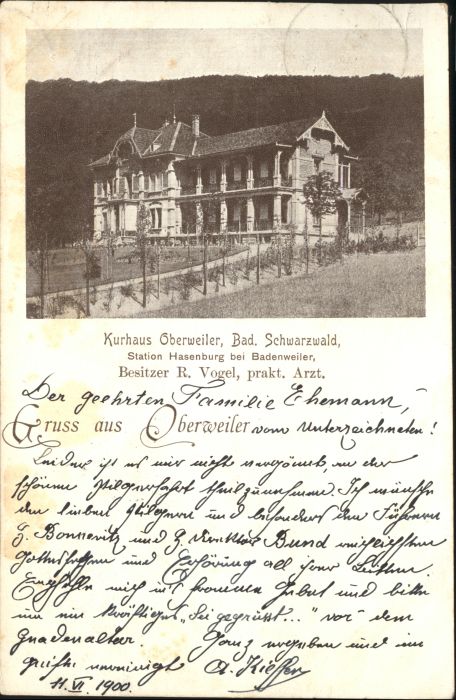 Kurhaus Oberweiler, Bad. Schwarzwald,
Station Hasenburg bei Badenweiler,
Besitzer R. Vogel, prakt. Arzt.
Der geehrten Familie Ehemann,
Gruss aus Oberweiler vom Unterzeichneten!
Leider ist es mir nicht vergönnt, an der
schönen Pilgerfahrt theilzunehmen. Ich wünsche
den lieben Pilgern und besonders den Führern
H. Bonneritz und H. Direktor Bund reichlichsten
Gottessegen und Erhörung all ihrer Bitten.
Empfehle mich ins fromme Gebet und bitte
um ein kräftiges „Sei gegrüsst..." vor dem
Gnadenaltar. Ganz ergeben und im
Geiste vereinigt A. Kieffer
11. VI. 1900.